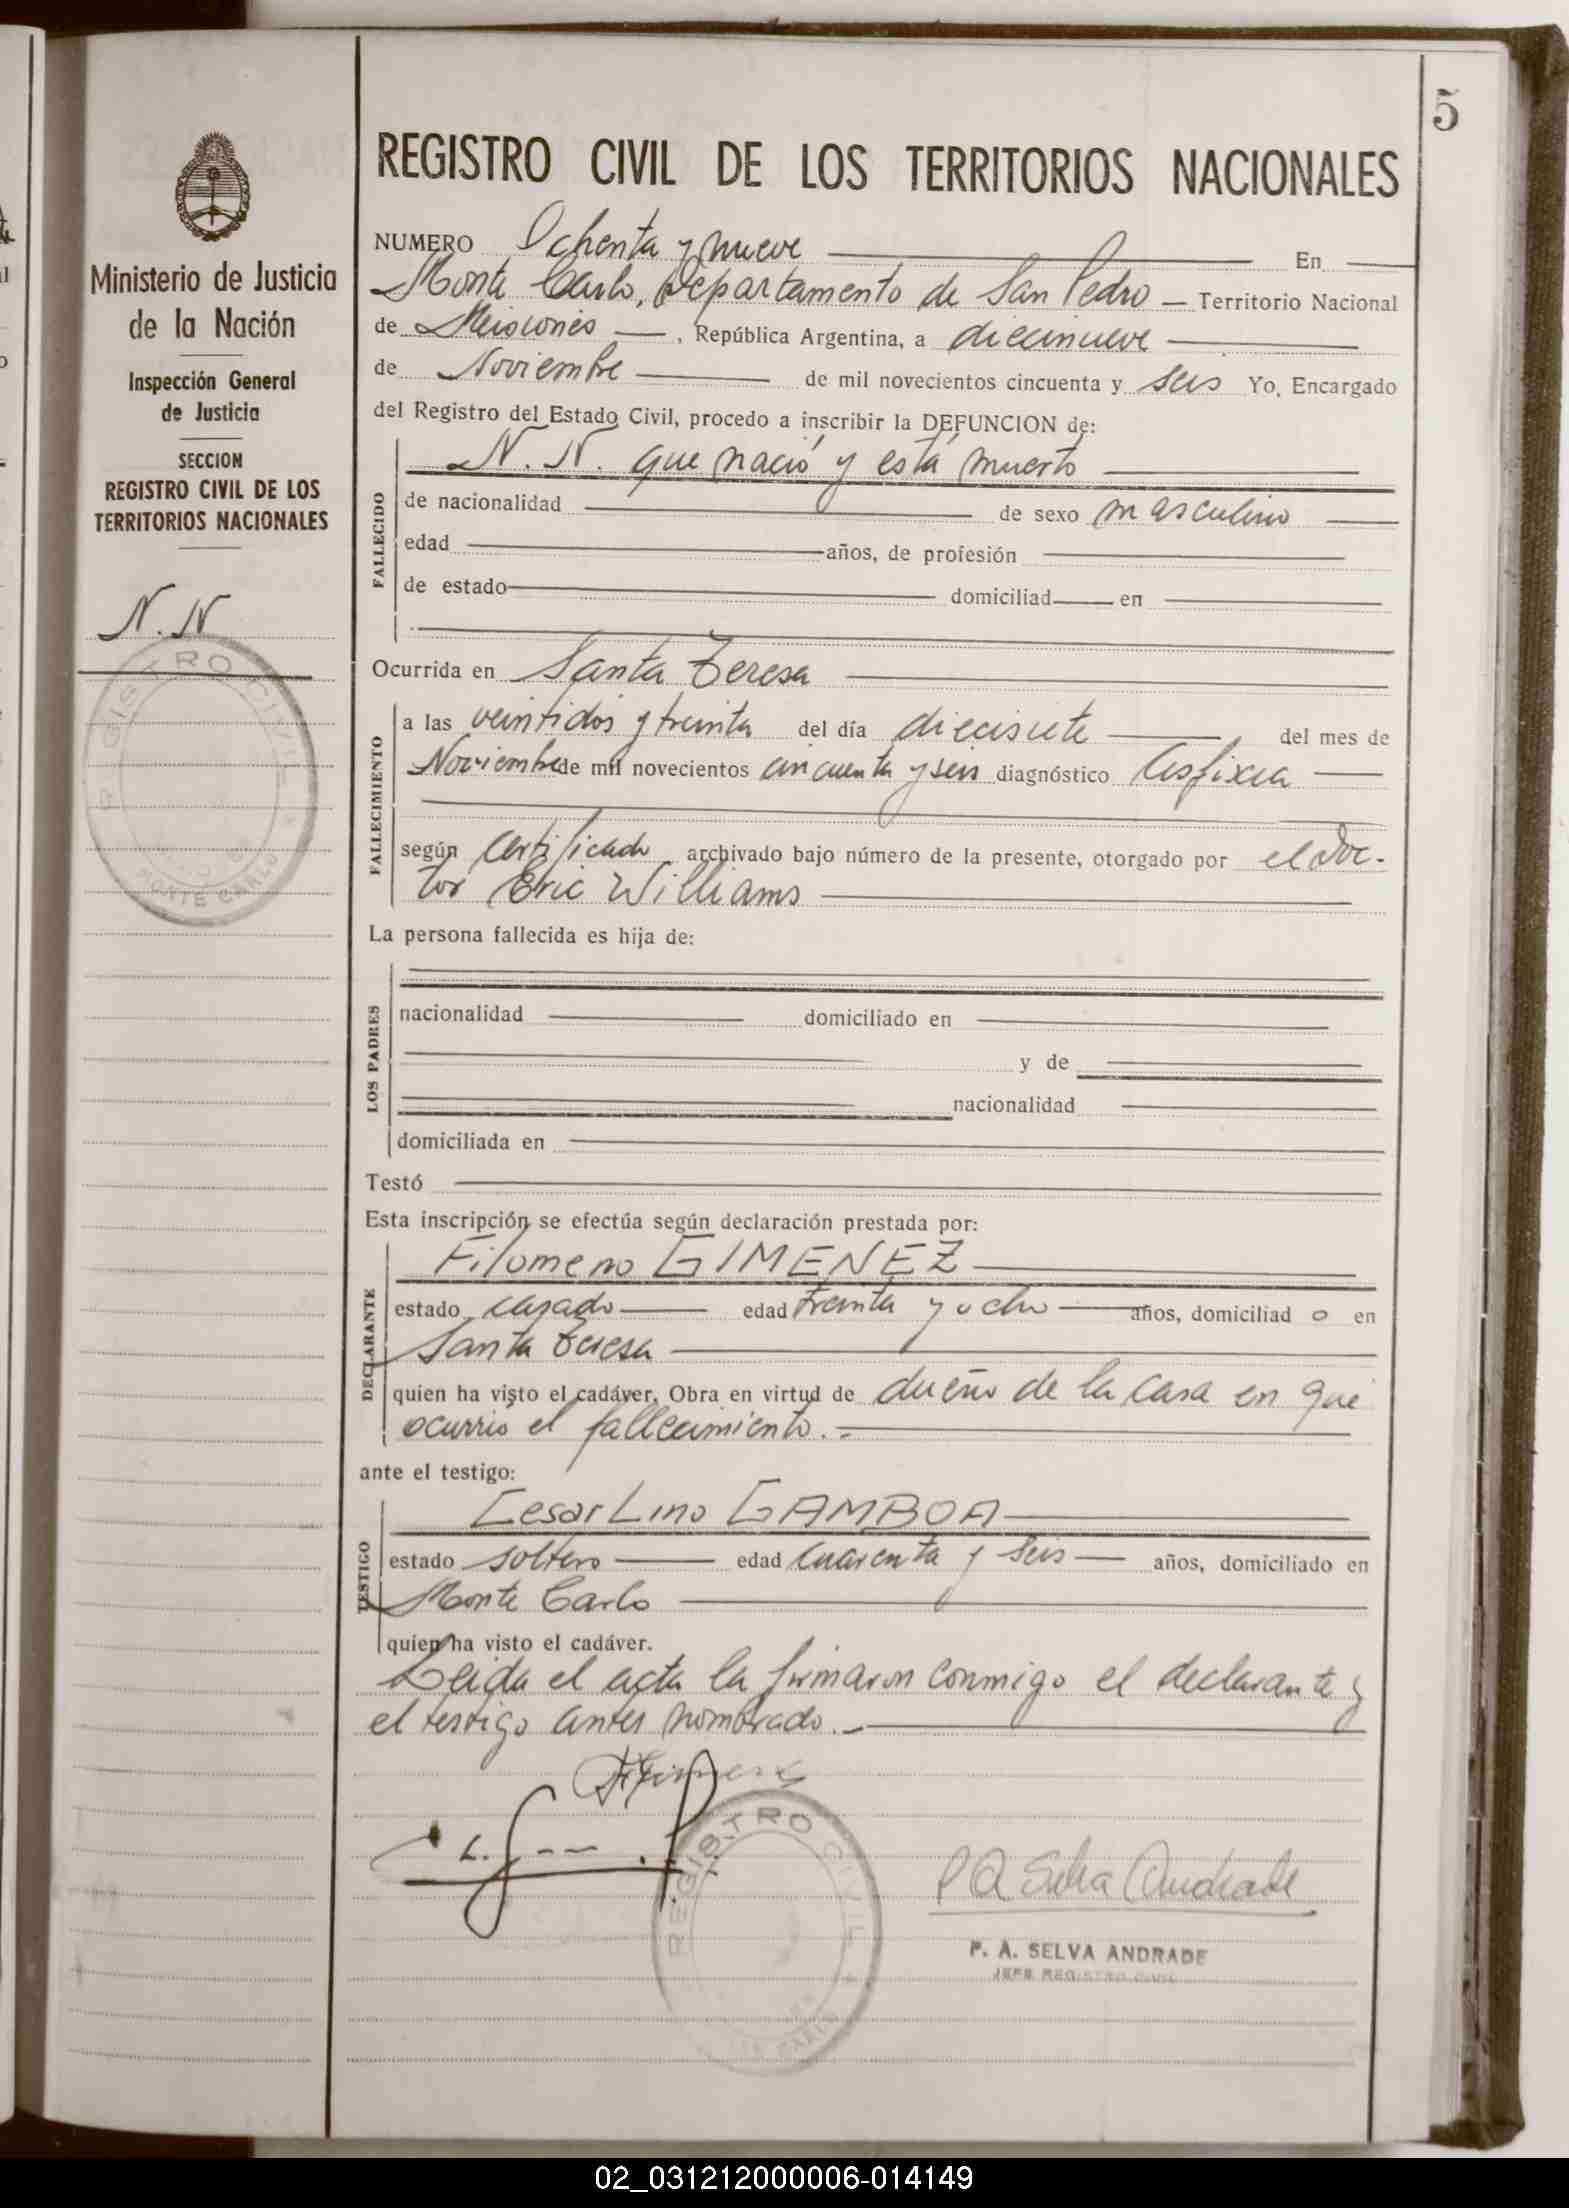 5
REGISTRO CIVIL DE LOS TERRITORIOS NACIONALES
Ministerio de Justicia
de la Nación
Inspección General
de Justicia
SECCION
REGISTRO CIVIL DE LOS
TERRITORIOS NACIONALES
N. N
REGISTRO CIVIL
MONTE CARLO
NUMERO Ochenta y nueve En
Monte Carlo, Departamento de San Pedro Territorio Nacional
de Misiones, República Argentina, a diecinueve
de Noviembre de mil novecientos cincuenta y seis Yo, Encargado
del Registro del Estado Civil, procedo a inscribir la DEFUNCION de:
FALLECIDO
N. N. que nació y está muerto
de nacionalidad de sexo masculino
edad años, de profesión
de estado domiciliad en
Ocurrida en Santa Teresa
FALLECIMIENTO
a las veintidos y treinta del día diecisiete del mes de
Noviembre de mil novecientos cincuenta y seis diagnóstico Asfixia
según certificado archivado bajo número de la presente, otorgado por el doc-
tor Eric Williams
La persona fallecida es hija de:
LOS PADRES
nacionalidad domiciliado en
y de
nacionalidad
domiciliada en
Testó
Esta inscripción se efectúa según declaración prestada por:
DECLARANTE
Filomeno GIMENEZ
estado casado edad treinta y ocho años, domiciliad o en
Santa Teresa
quien ha visto el cadáver. Obra en virtud de dueño de la casa en que
ocurrió el fallecimiento.-
ante el testigo:
TESTIGO
Cesar Lino GAMBOA
estado soltero edad cuarenta y seis años, domiciliado en
Monte Carlo
quien ha visto el cadáver.
Leida el acta la firmaron conmigo el declarante y
el testigo antes nombrado.-
REGISTRO CIVIL
P A Selva Andrade
P. A. SELVA ANDRADE
JEFE REGISTRO CIVIL
02_031212000006-014149